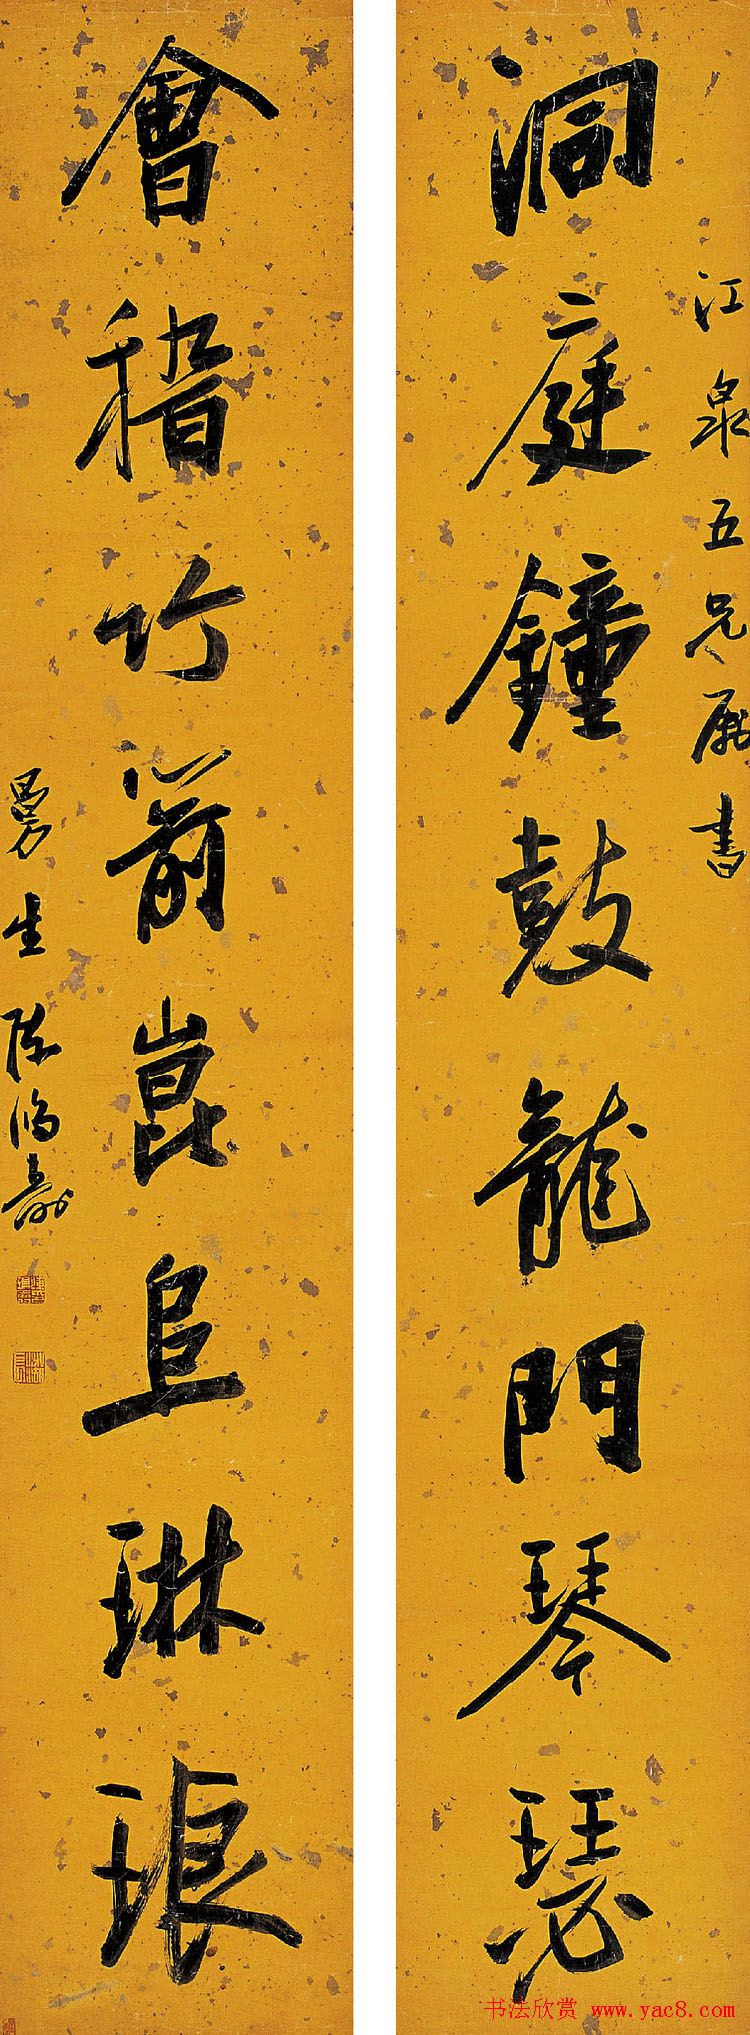 江泉五兄屬書
洞庭鐘鼓龍門琴瑟
會稽竹箭崑阜琳琅
曼生陳鴻壽
书法欣赏 www.yac8.com